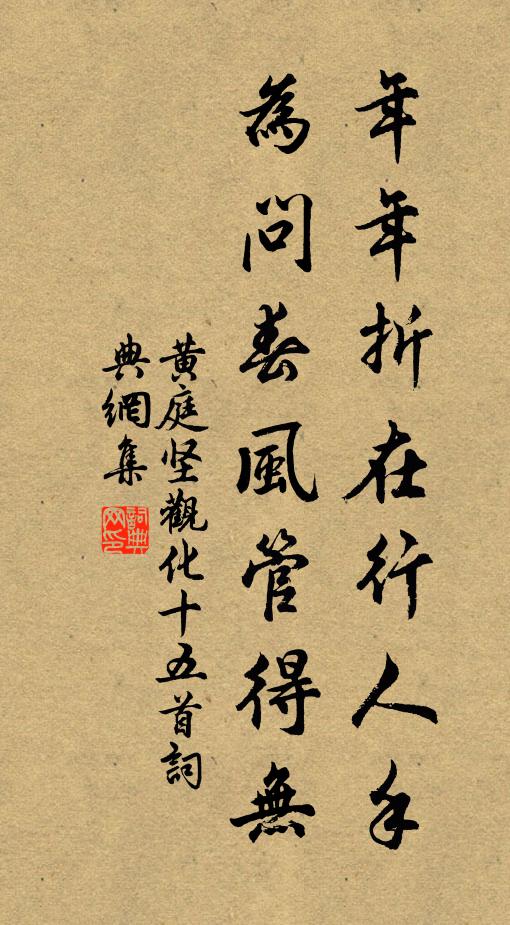 年年折在行人手
為問春風管得無
黄庭坚觀化十五首詞
典網集
詞典網印